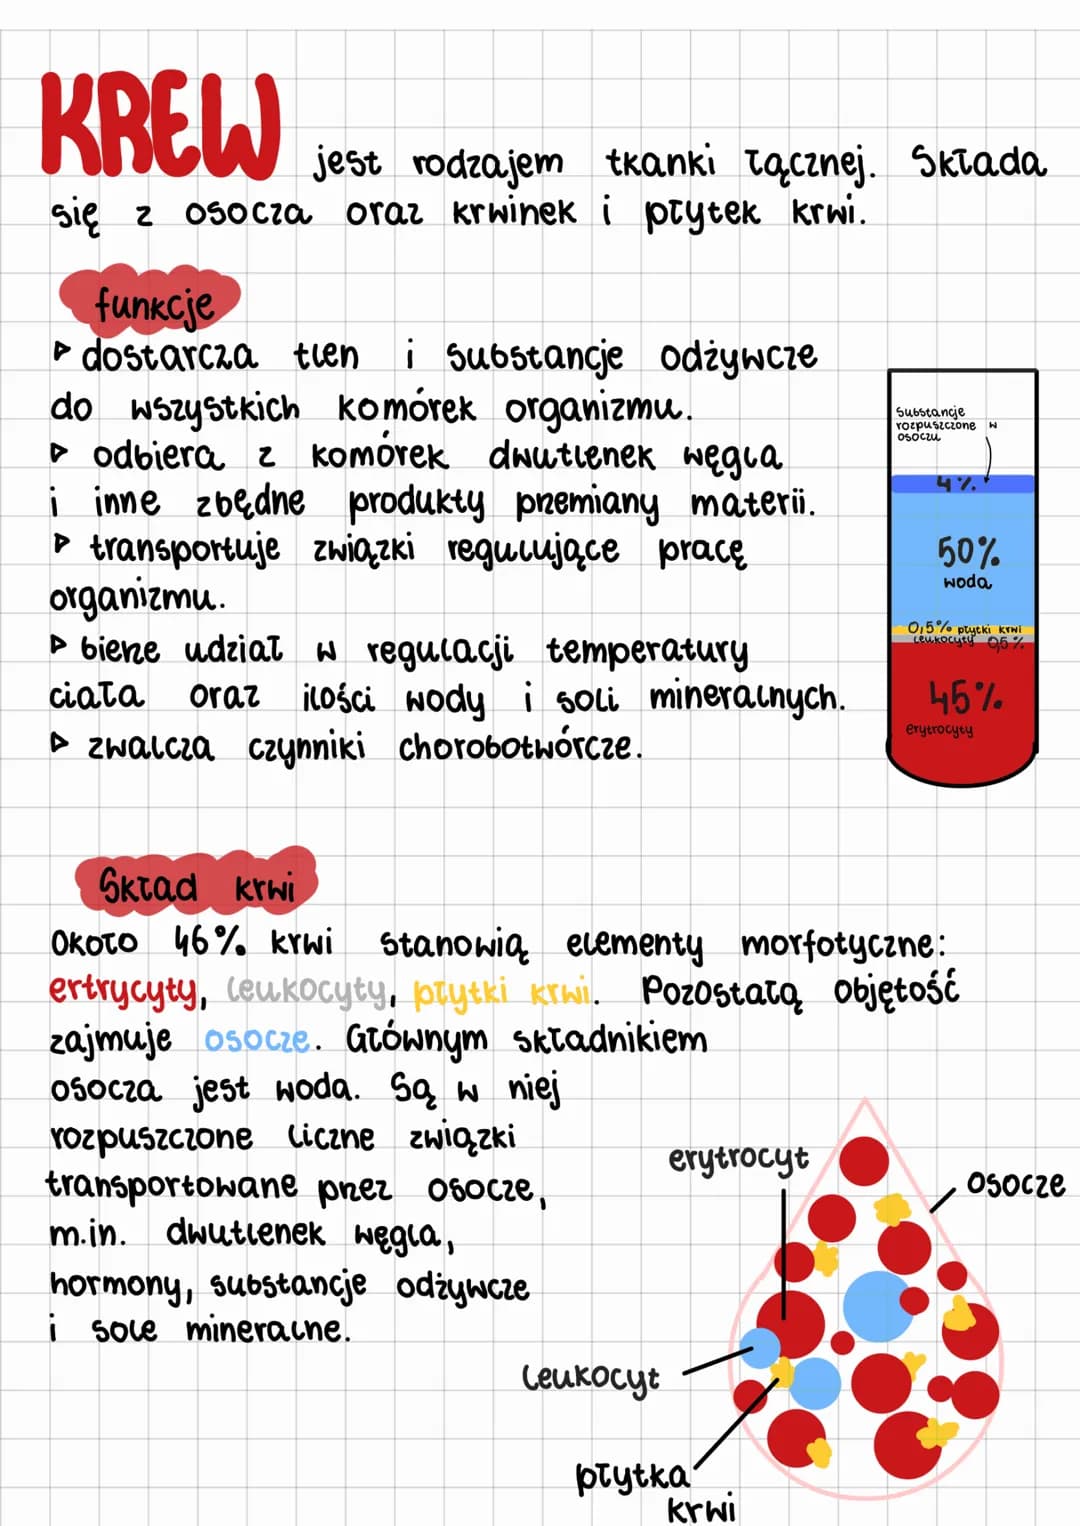 KREW jest rodzajem tkanki łącznej. Składa
się z osocza oraz krwinek i płytek krwi.
funkcje
▹ dostarcza tlen i substancje odżywcze
do wszystkich komórek organizmu.
▹ odbiera z komórek dwutlenek węgla
i inne zbędne produkty przemiany materii.
▹ transportuje związki regulujące pracę
organizmu.
▹ bierze udział w regulacji temperatury
ciała oraz ilości wody i soli mineralnych.
▹ zwalcza czynniki chorobotwórcze.
Substancje
rozpuszczone w
osoczu
4%
50%
woda
0,5% płytki krwi
leukocyty 0,5%
45%
erytrocyty
Skład krwi
Około 46% krwi stanowią elementy morfotyczne:
ertrycyty, leukocyty, płytki krwi. Pozostałą objętość
zajmuje osocze. Głównym składnikiem
osocza jest woda. Są w niej
rozpuszczone liczne związki
transportowane przez osocze,
m.in. dwutlenek węgla,
hormony, substancje odżywcze
i sole mineralne.
erytrocyt
osocze
leukocyt
płytka
krwi